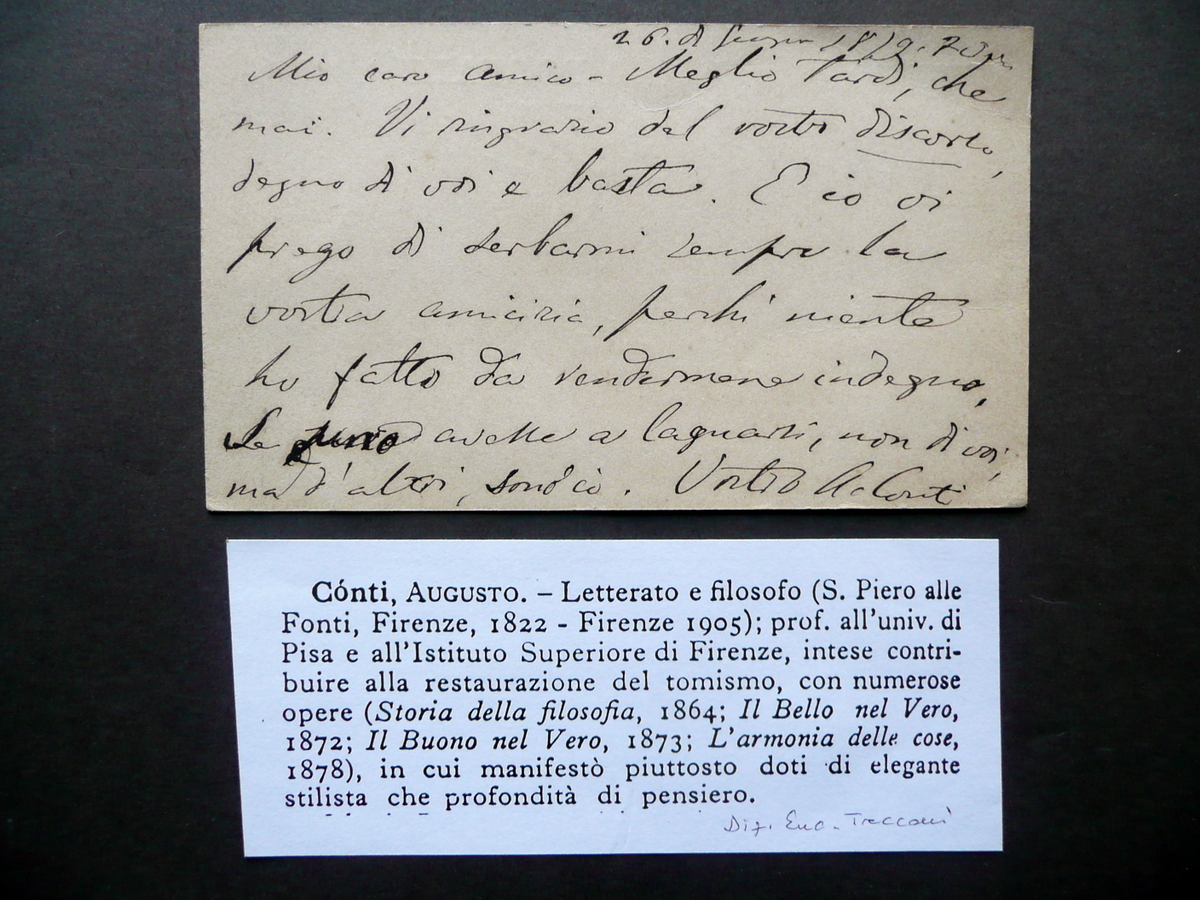 26. di 1879.
Mio caro amico - Meglio tardi, che
mai. Vi ringrazio del vostro discorso,
degno di voi e basta. E io vi
prego di serbarmi sempre la
vostra amicizia, perchè niente
ho fatto da rendermene indegno,
Se avesse a lagnarsi, non di voi,
ma d'altri, son io. Vostro A. Conti
Cónti, AUGUSTO. – Letterato e filosofo (S. Piero alle
Fonti, Firenze, 1822 - Firenze 1905); prof. all'univ. di
Pisa e all'Istituto Superiore di Firenze, intese contri-
buire alla restaurazione del tomismo, con numerose
opere (Storia della filosofia, 1864; Il Bello nel Vero,
1872; Il Buono nel Vero, 1873; L'armonia delle cose,
1878), in cui manifestò piuttosto doti di elegante
stilista che profondità di pensiero.
Diz. Enc. Treccani